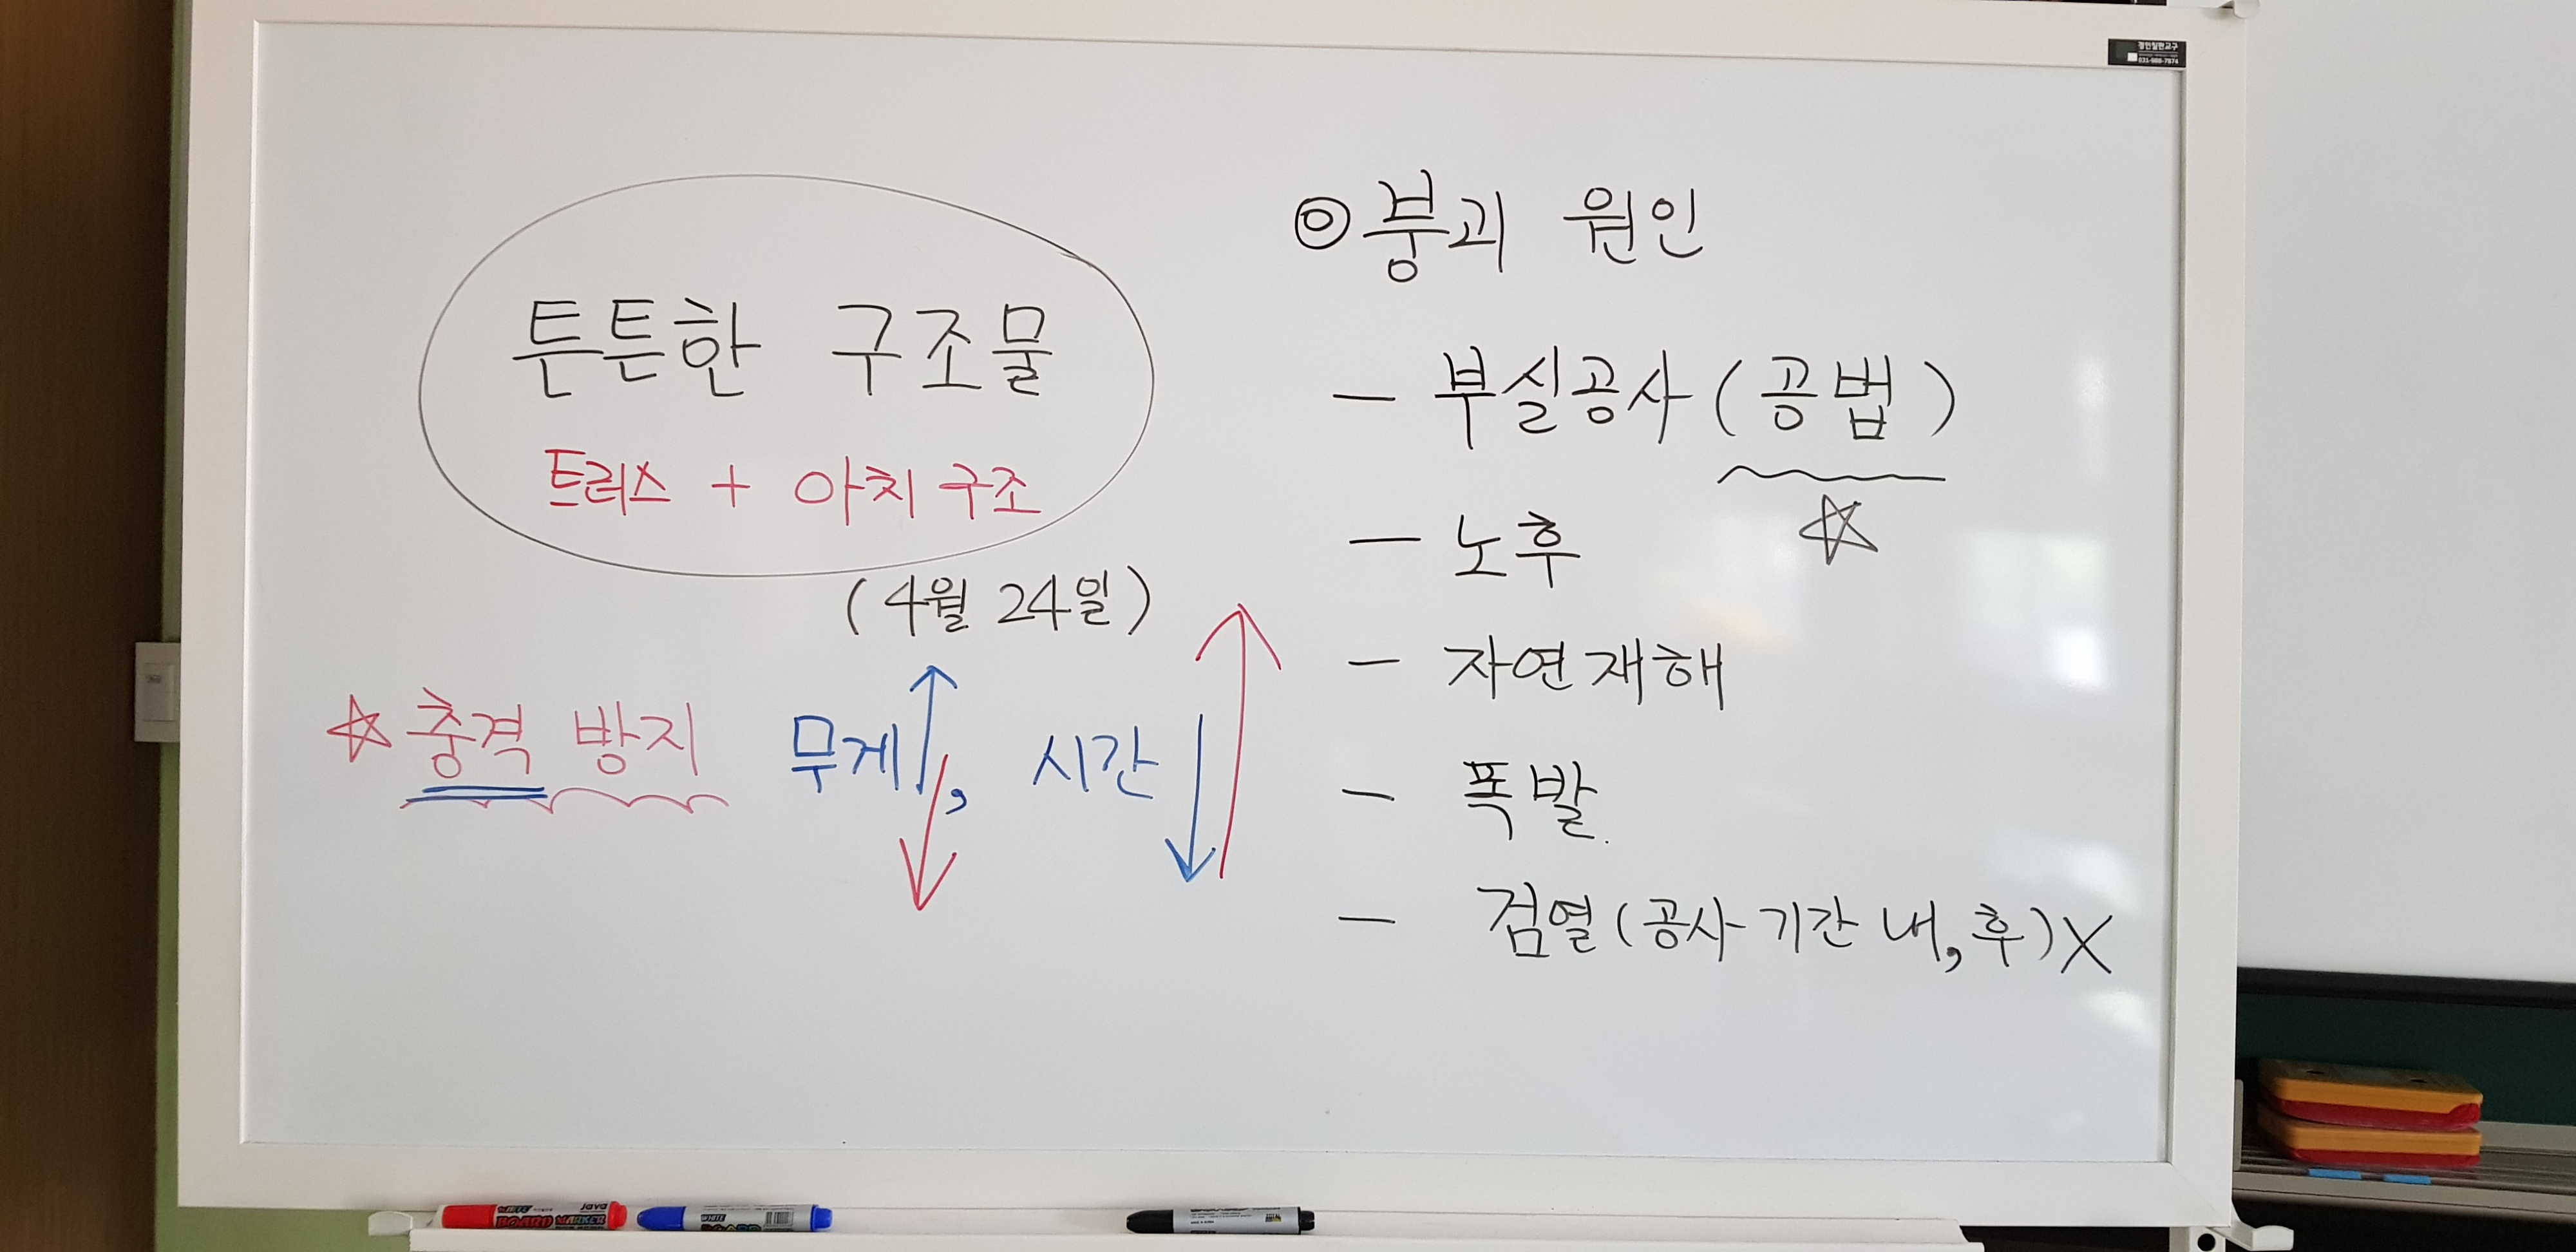 튼튼한 구조물
트러스 + 아치 구조
(4월 24일)
☆ 충격 방지 무게↑↓, 시간↓↑
◎ 붕괴 원인
- 부실공사(공법)
☆
- 노후
- 자연재해
- 폭발.
- 점열(공사기간 내,후)X
경인칠판교구
031-988-7874
WHITE
BOARD MARKER
java
WHITE
BOARD